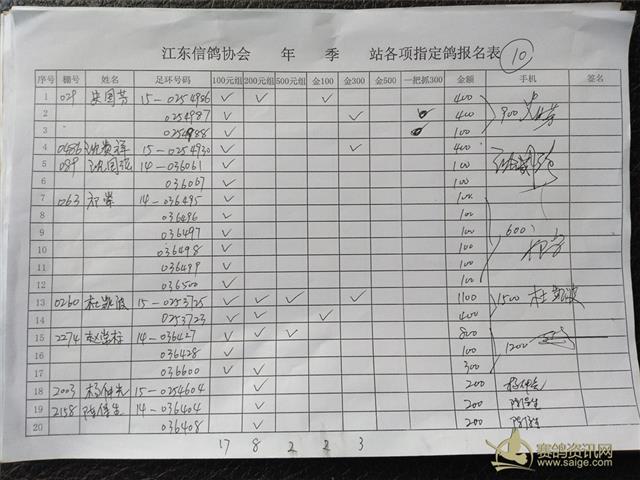 江东信鸽协会 年 季 站各项指定鸽报名表 10
序号 棚号 姓名 足环号码 100元组 200元组 500元组 金100 金300 金500 一把抓300 金额 手机 签名
1 029 15-0254986 ✓ ✓ ✓ 400
2 0254987 ✓ ✓ 400 900
3 0254988 ✓ 100
4 15-0254930 ✓ ✓ 400
5 089 14-036061 ✓ 100
6 036067 ✓ 100
7 063 14-036495 ✓ 100
8 036496 ✓ 100
9 036497 ✓ 100 600
10 036498 ✓ 100
11 036499 ✓ 100
12 036500 ✓ 100
13 0260 杜凯波 15-0253725 ✓ ✓ ✓ ✓ 1100 1500 杜凯波
14 0253723 ✓ ✓ ✓ 400
15 2274 14-036427 ✓ ✓ ✓ 800
16 036428 ✓ 100 1200
17 036600 ✓ ✓ 300
18 2003 15-0254604 ✓ 200
19 2158 14-036404 ✓ 200
20 036408 ✓ 200
17 8 2 2 3
赛鸽资讯网
www.saige.com